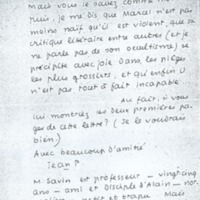 Mais vous le savez comme
Puis, je me dis que Marcel n'est pas
moins naïf qu'il est violent, que sa
critique littéraire entre autres (et je
ne parle pas de son occultisme) se
précipite avec joie dans les pièges
les plus grossiers, et qu'enfin il
n'est pas tout à fait incapable.
Au fait, si vous
lui montriez les deux premières pa-
ges de cette lettre? (Je le voudrais
bien)
Avec beaucoup d'amitié
Jean P
M. Savin est professeur — vingt-cinq
ans — ami et disciple d'Alain — nor-
et trapu. Mais